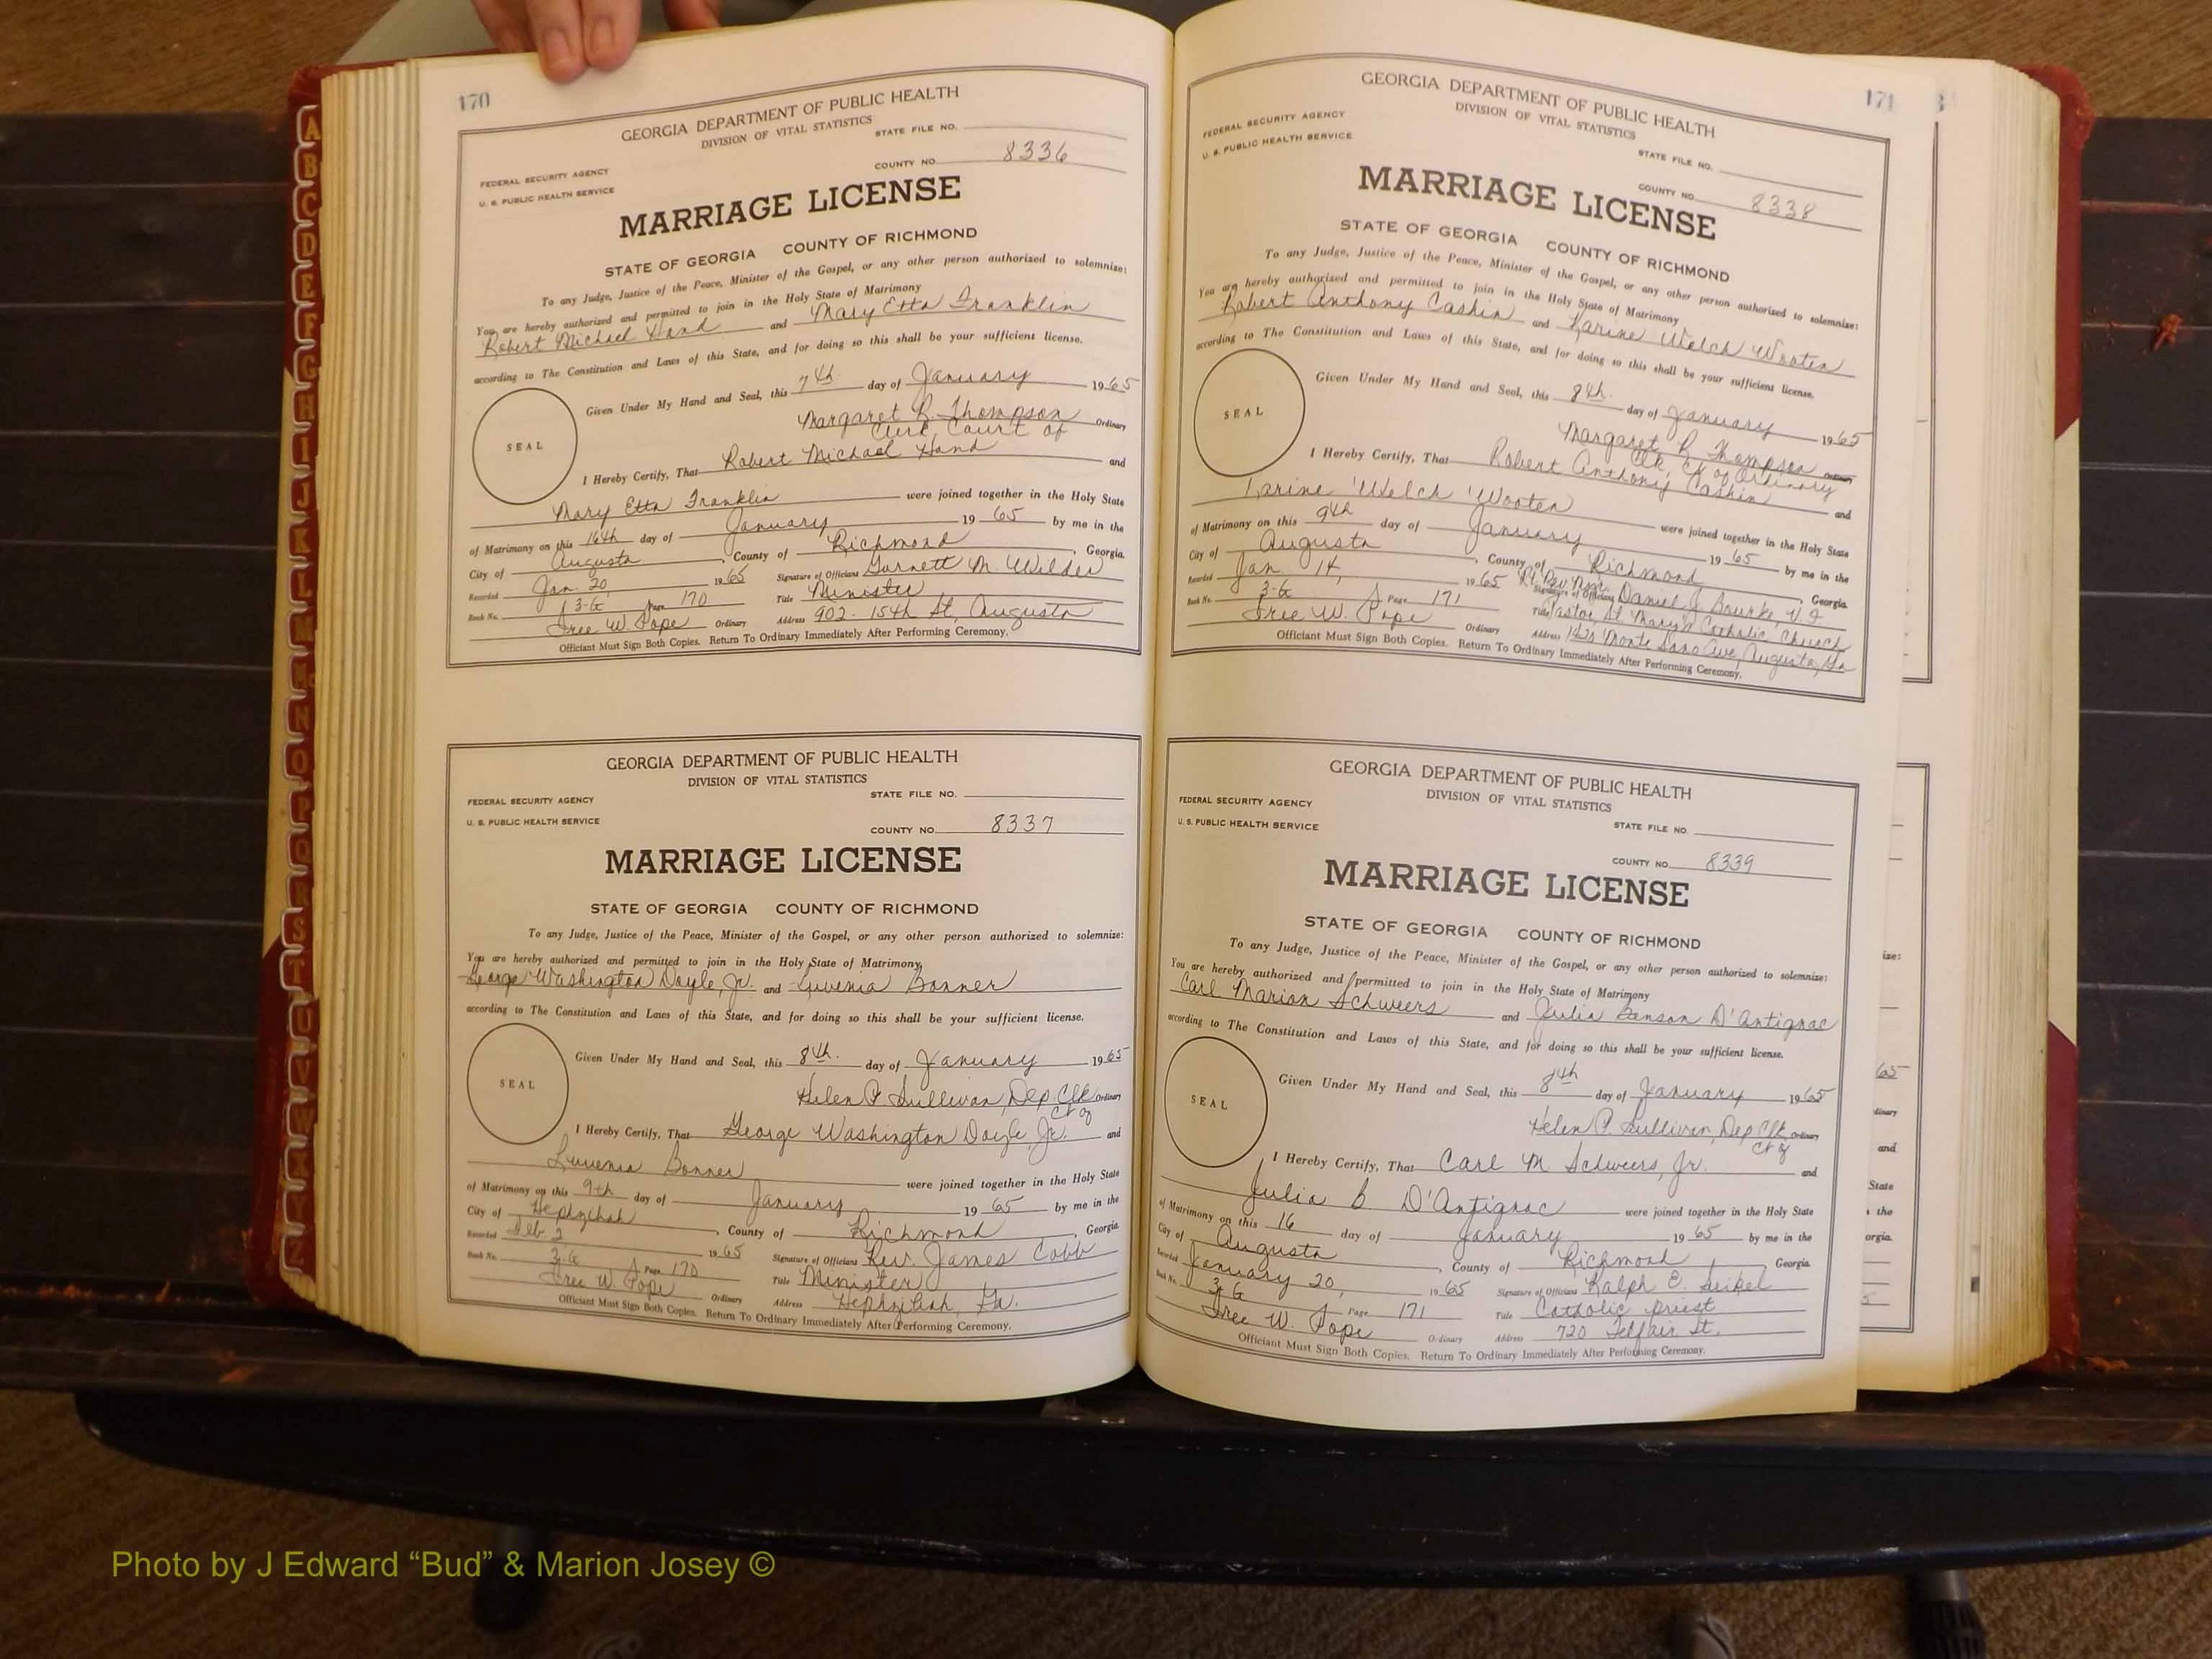 170
GEORGIA DEPARTMENT OF PUBLIC HEALTH
DIVISION OF VITAL STATISTICS
STATE FILE NO.
FEDERAL SECURITY AGENCY
U. S. PUBLIC HEALTH SERVICE
COUNTY NO. 8336
MARRIAGE LICENSE
STATE OF GEORGIA COUNTY OF RICHMOND
To any Judge, Justice of the Peace, Minister of the Gospel, or any other person authorized to solemnize:
You are hereby authorized and permitted to join in the Holy State of Matrimony
Robert Michael Hand and Mary Etta Franklin
according to The Constitution and Laws of this State, and for doing so this shall be your sufficient license.
Given Under My Hand and Seal, this 7th day of January 1965
Margaret R. Thompson Ordinary
Clerk, Court of
SEAL
I Hereby Certify, That Robert Michael Hand and
Mary Etta Franklin were joined together in the Holy State
of Matrimony on this 16th day of January 19 65 by me in the
City of Augusta, County of Richmond, Georgia.
Recorded Jan. 20 1965 Signature of Officiant Garnett M. Wilder
Book No. 3-G Page 170 Title Minister
Tree W. Pope Ordinary Address 902-15th St, Augusta
Officiant Must Sign Both Copies. Return To Ordinary Immediately After Performing Ceremony.
GEORGIA DEPARTMENT OF PUBLIC HEALTH
DIVISION OF VITAL STATISTICS
STATE FILE NO.
FEDERAL SECURITY AGENCY
U. S. PUBLIC HEALTH SERVICE
COUNTY NO. 8337
MARRIAGE LICENSE
STATE OF GEORGIA COUNTY OF RICHMOND
To any Judge, Justice of the Peace, Minister of the Gospel, or any other person authorized to solemnize:
You are hereby authorized and permitted to join in the Holy State of Matrimony
George Washington Doyle, Jr. and Luvenia Bonner
according to The Constitution and Laws of this State, and for doing so this shall be your sufficient license.
Given Under My Hand and Seal, this 8th. day of January 1965
Helen P. Sullivan, Dep. Clk Ordinary
Ct of
SEAL
I Hereby Certify, That George Washington Doyle, Jr. and
Luvenia Bonner were joined together in the Holy State
of Matrimony on this 9th day of January 19 65 by me in the
City of Hephzibah, County of Richmond, Georgia.
Recorded Feb. 2 1965 Signature of Officiant Rev. James Cobb
Book No. 3-G Page 170 Title Minister
Tree W. Pope Ordinary Address Hephzibah, Ga.
Officiant Must Sign Both Copies. Return To Ordinary Immediately After Performing Ceremony.
171
GEORGIA DEPARTMENT OF PUBLIC HEALTH
DIVISION OF VITAL STATISTICS
FEDERAL SECURITY AGENCY
U. S. PUBLIC HEALTH SERVICE
STATE FILE NO.
COUNTY NO. 8338
MARRIAGE LICENSE
STATE OF GEORGIA COUNTY OF RICHMOND
To any Judge, Justice of the Peace, Minister of the Gospel, or any other person authorized to solemnize:
You are hereby authorized and permitted to join in the Holy State of Matrimony
Robert Anthony Cashin and Larine Welch Wooten
according to The Constitution and Laws of this State, and for doing so this shall be your sufficient license.
Given Under My Hand and Seal, this 8th. day of January 1965
Margaret R. Thompson Ordinary
Clk, Ct of Ordinary
SEAL
I Hereby Certify, That Robert Anthony Cashin and
Larine Welch Wooten were joined together in the Holy State
of Matrimony on this 9th day of January 19 65 by me in the
City of Augusta, County of Richmond, Georgia.
Recorded Jan. 14, 1965 Signature of Officiant Rt. Rev. Msgr. Daniel J. Bourke, V. F.
Book No. 3-G Page 171 Title Pastor, St Mary's Catholic Church
Tree W. Pope Ordinary Address 1420 Monte Sano Ave, Augusta, Ga
Officiant Must Sign Both Copies. Return To Ordinary Immediately After Performing Ceremony.
GEORGIA DEPARTMENT OF PUBLIC HEALTH
DIVISION OF VITAL STATISTICS
FEDERAL SECURITY AGENCY
U. S. PUBLIC HEALTH SERVICE
STATE FILE NO.
COUNTY NO. 8339
MARRIAGE LICENSE
STATE OF GEORGIA COUNTY OF RICHMOND
To any Judge, Justice of the Peace, Minister of the Gospel, or any other person authorized to solemnize:
You are hereby authorized and permitted to join in the Holy State of Matrimony
Carl Marion Schweers and Julia Benson D'Antignac
according to The Constitution and Laws of this State, and for doing so this shall be your sufficient license.
Given Under My Hand and Seal, this 8th day of January 1965
Helen P. Sullivan, Dep Clk Ordinary
Ct of
SEAL
I Hereby Certify, That Carl M Schweers, Jr. and
Julia B D'Antignac were joined together in the Holy State
of Matrimony on this 16 day of January 19 65 by me in the
City of Augusta, County of Richmond Georgia.
Recorded January 20, 1965 Signature of Officiant Ralph E. Seikel
Book No. 3-G Page 171 Title Catholic priest
Tree W. Pope Ordinary Address 720 Telfair St.
Officiant Must Sign Both Copies. Return To Ordinary Immediately After Performing Ceremony.
ize:
65
dinary
and
State
the
orgia.
A
B
C
D
E
F
G
H
I
J
K
L
M
Mc
N
O
P
Q
R
S
T
U
V
W
Z
Photo by J Edward “Bud” & Marion Josey ©